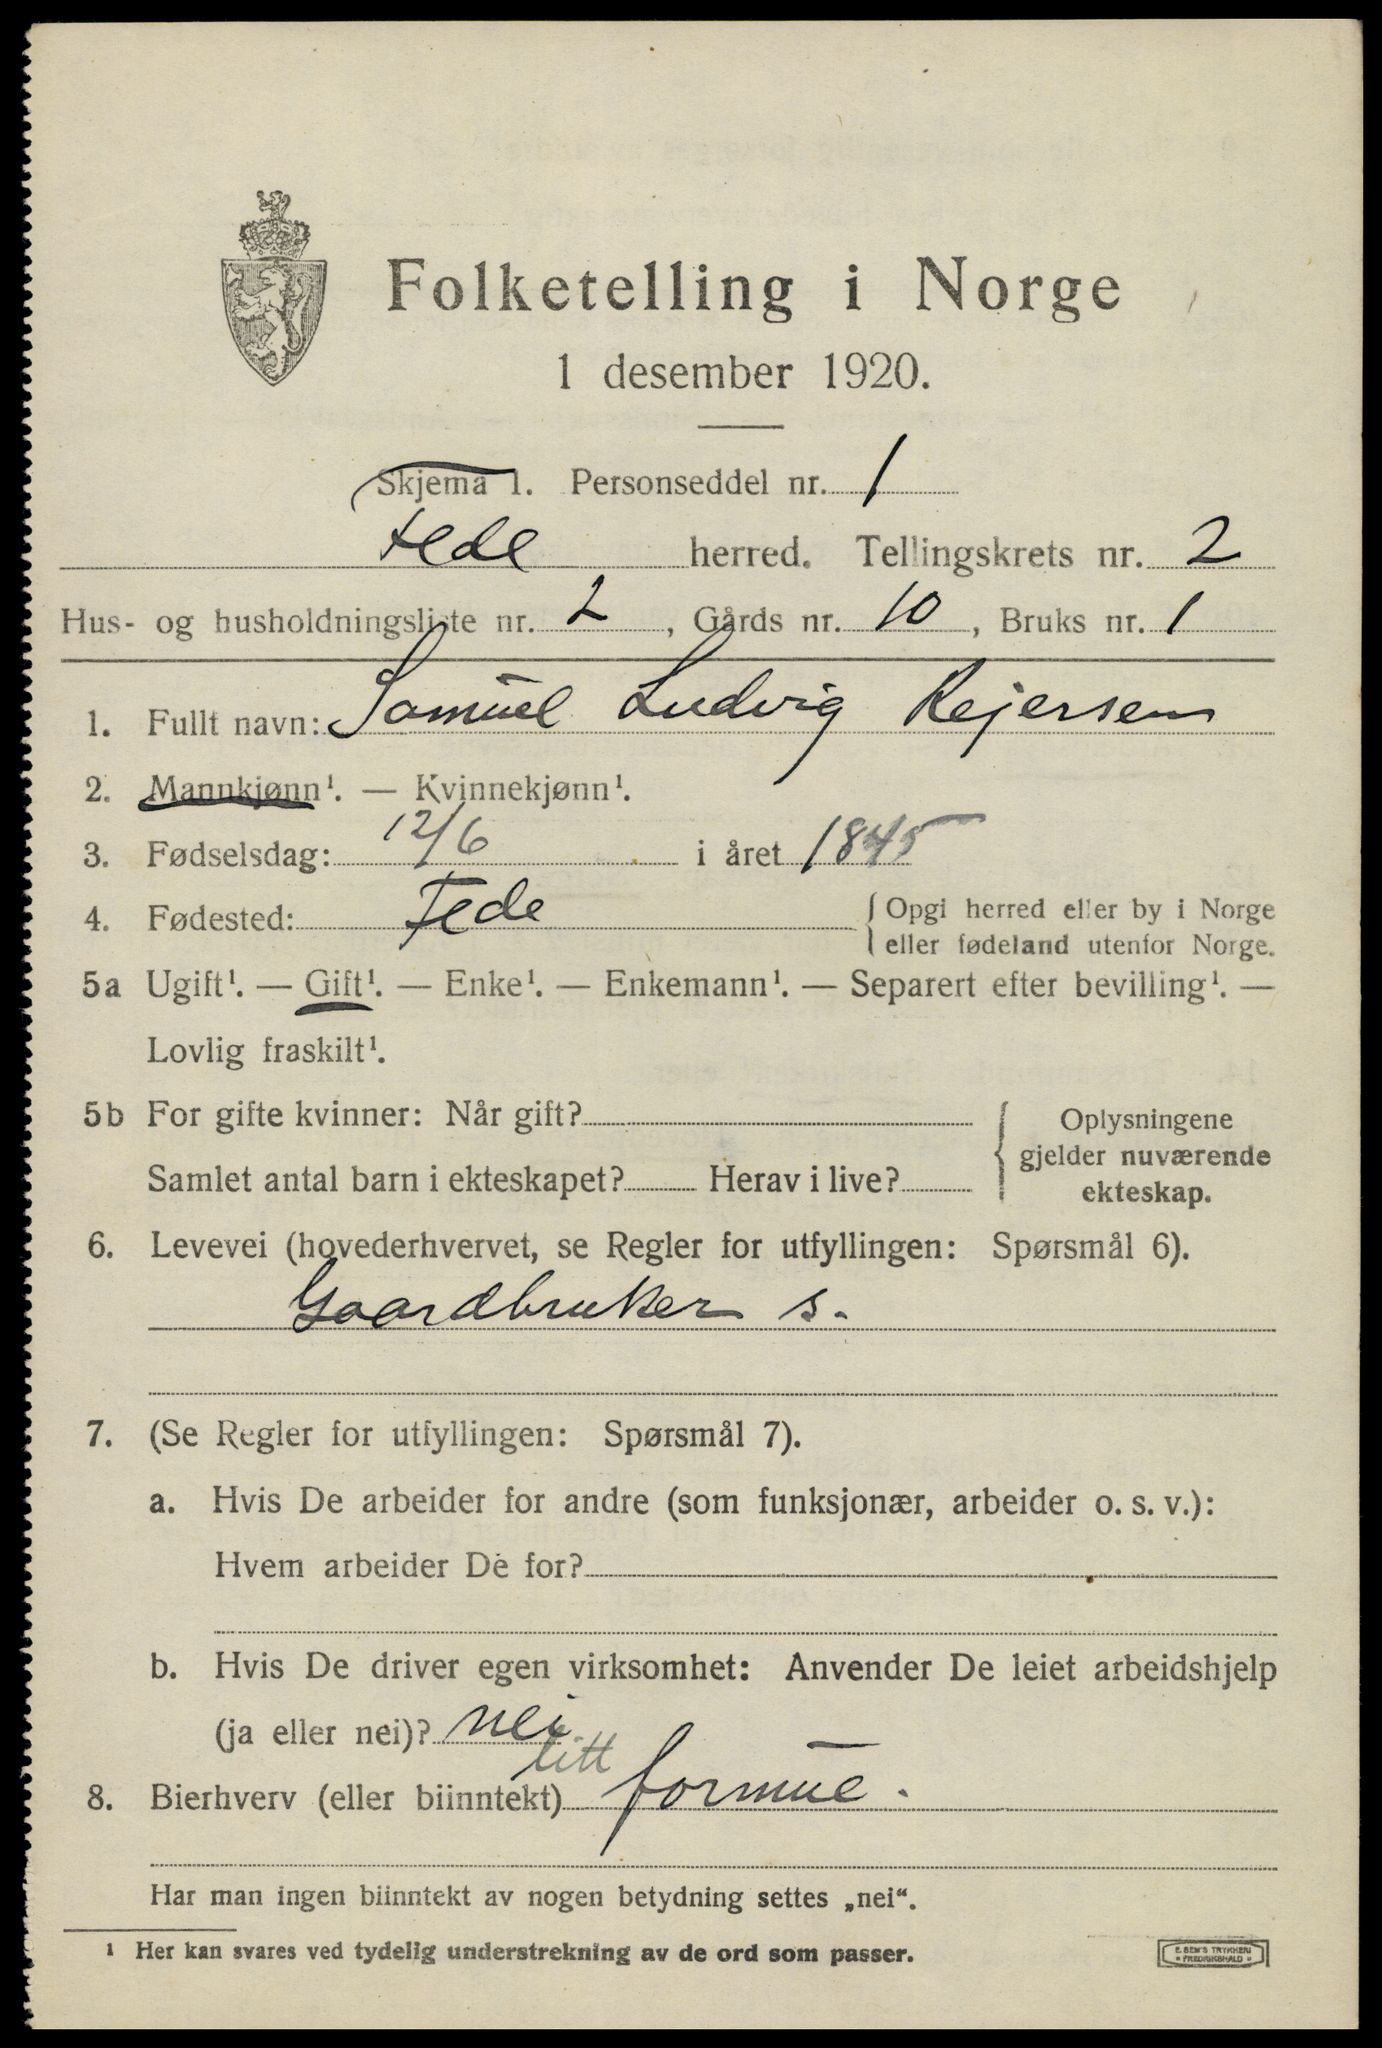 Folketelling i Norge
1 desember 1920.
Skjema 1. Personseddel nr. 1
Fede herred. Tellingskrets nr. 2
Hus- og husholdningsliste nr. 2, Gårds nr. 10, Bruks nr. 1
1. Fullt navn: Samuel Ludvig Rejersen
2. Mannkjønn¹. — Kvinnekjønn¹.
3. Fødselsdag: 12/6 i året 1845
4. Fødested: Fede {Opgi herred eller by i Norge
eller fødeland utenfor Norge.
5a Ugift¹. — Gift¹. — Enke¹. — Enkemann¹. — Separert efter bevilling¹. —
Lovlig fraskilt¹.
5b For gifte kvinner: Når gift? { Oplysningene
gjelder nuværende
Samlet antal barn i ekteskapet? Herav i live? ekteskap.
6. Levevei (hovederhvervet, se Regler for utfyllingen: Spørsmål 6).
Gaardbruker s.
7. (Se Regler for utfyllingen: Spørsmål 7).
a. Hvis De arbeider for andre (som funksjonær, arbeider o. s. v.):
Hvem arbeider De for?
b. Hvis De driver egen virksomhet: Anvender De leiet arbeidshjelp
(ja eller nei)? nei
litt
8. Bierhverv (eller biinntekt) formue.
Har man ingen biinntekt av nogen betydning settes „nei“.
¹ Her kan svares ved tydelig understrekning av de ord som passer.
E. SEM'S TRYKKERI
FREDRIKSHALD